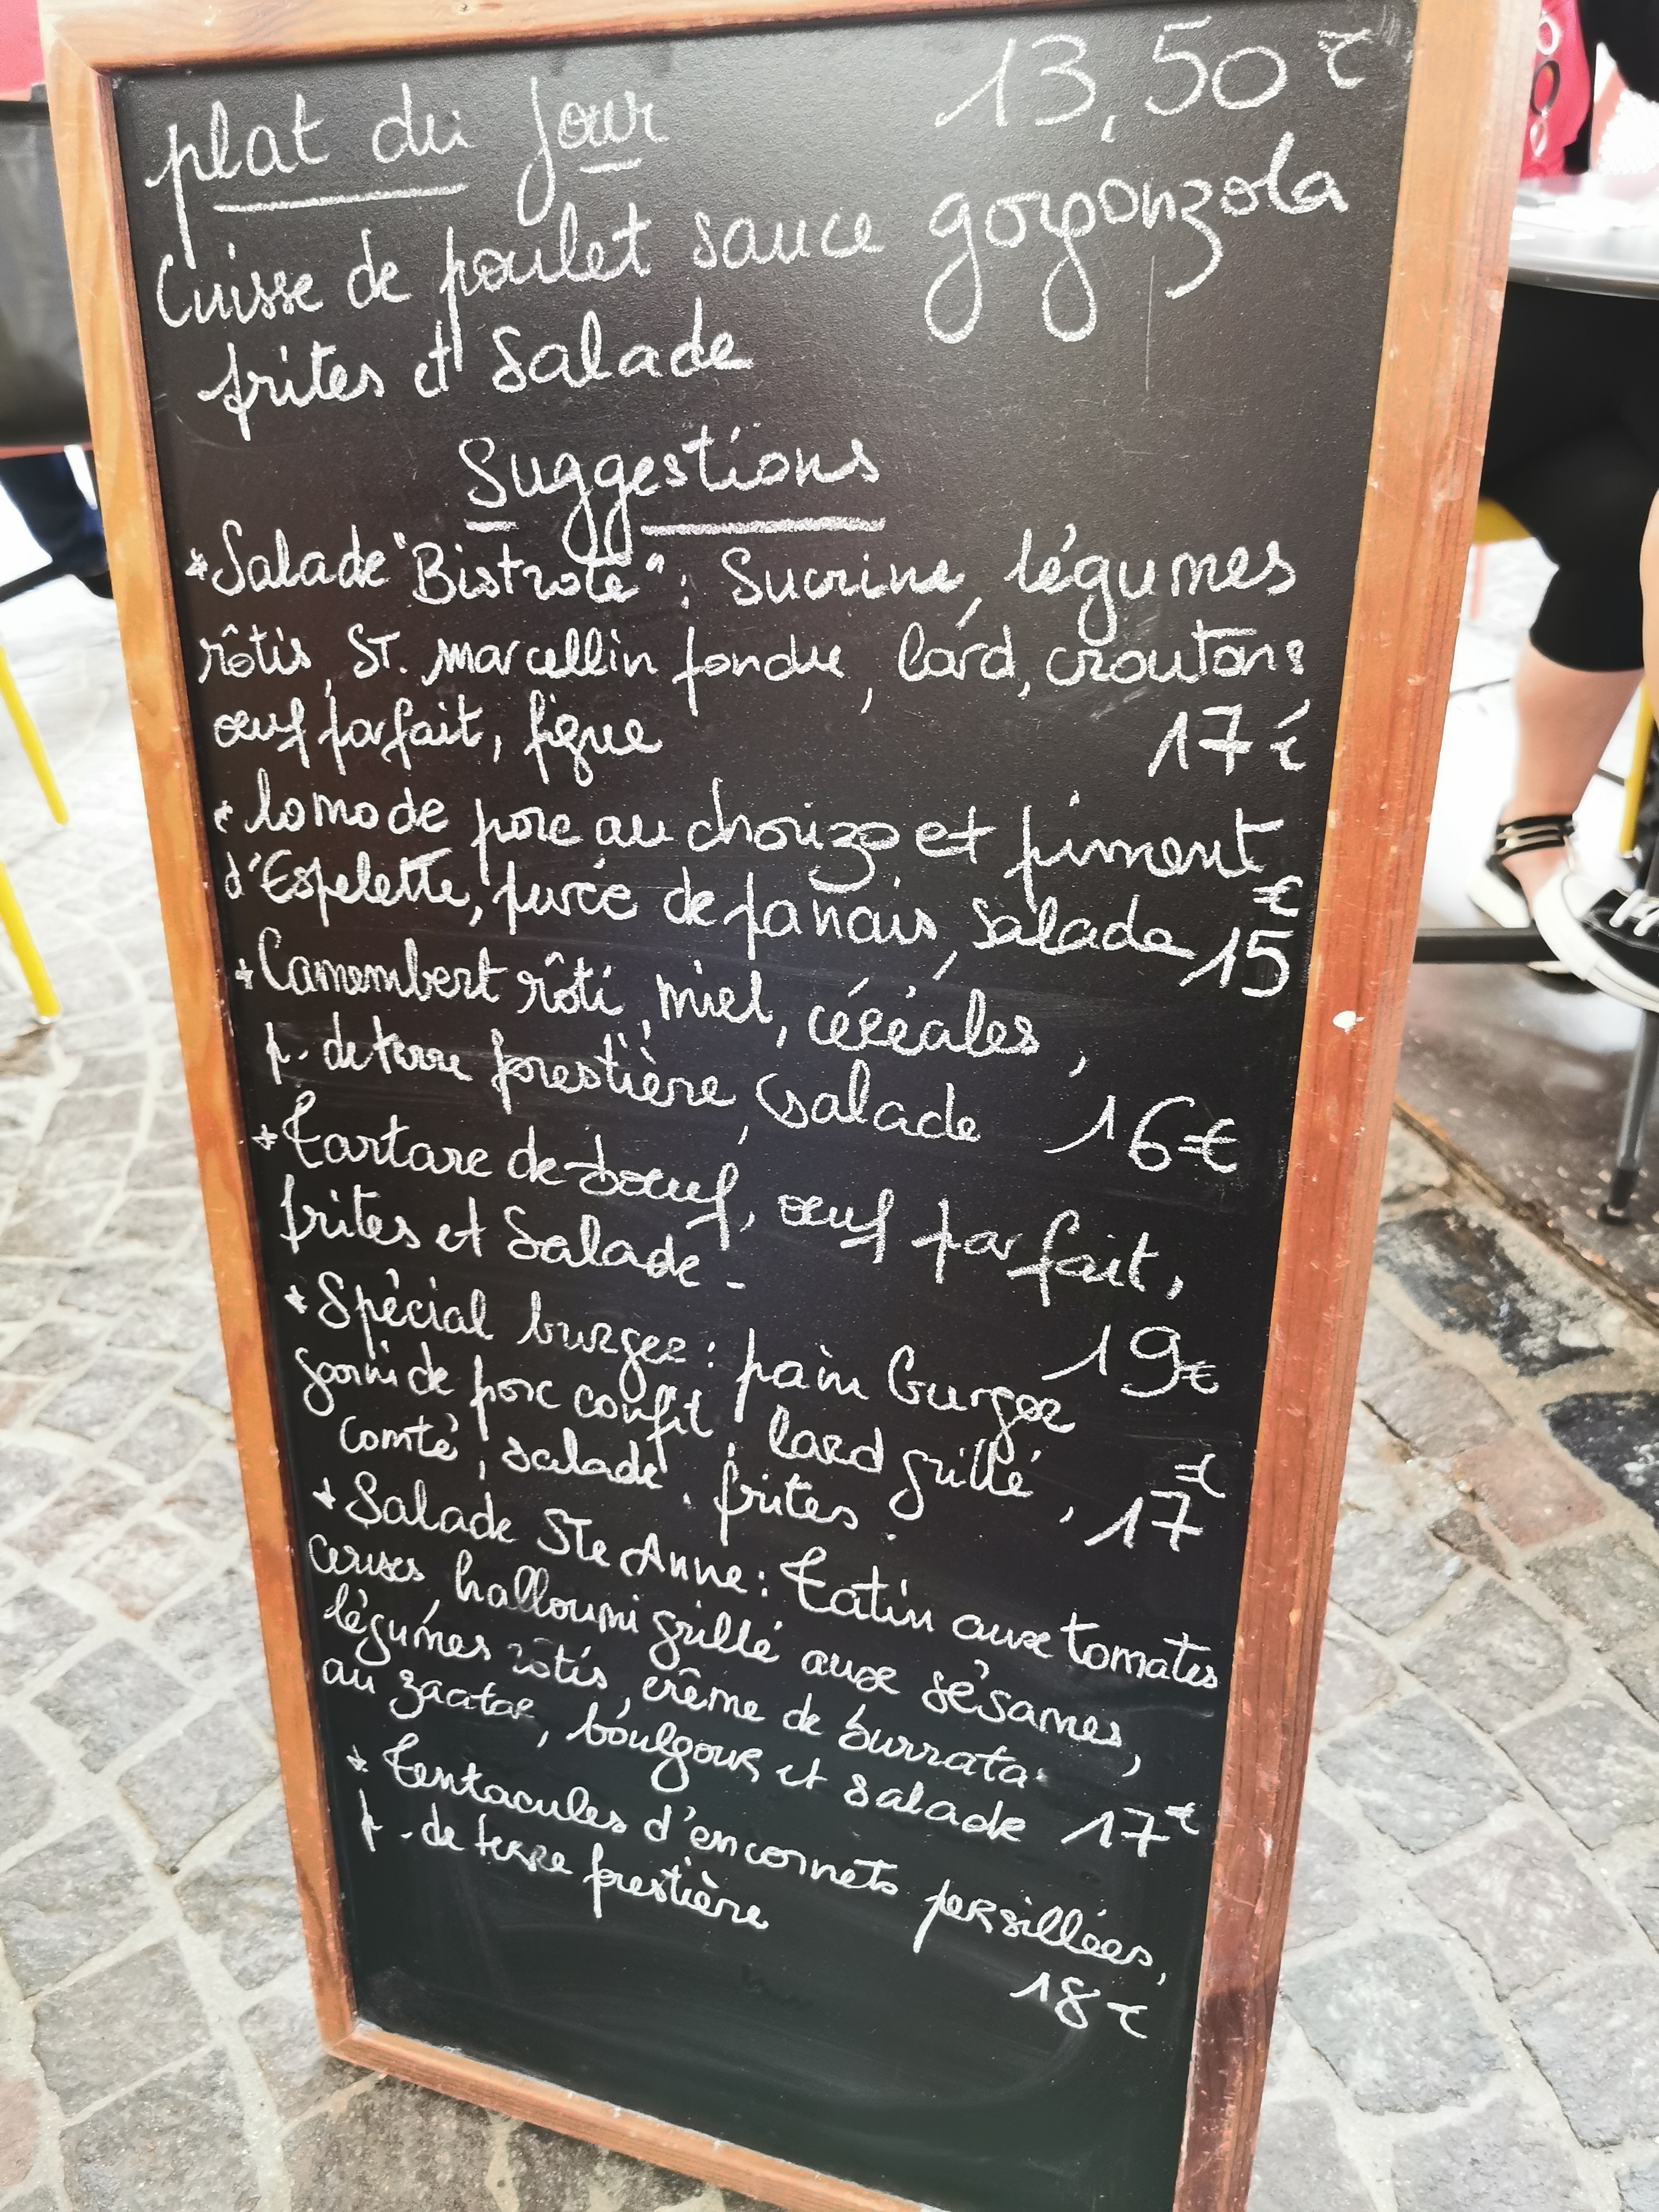 plat du jour 13,50 €
Cuisse de poulet sauce gorgonzola
frites et Salade
Suggestions
*Salade "Bistrote" : Sucrine, légumes
rôtis, ST. marcellin fondue, lard, croutons
œuf parfait, figue 17 €
* lomo de porc au chorizo et piment
d'Espelette, purée de panais, salade 15 €
* Camembert rôti, miel, céréales,
p. de terre forestière, salade 16 €
* Tartare de boeuf, œuf parfait,
frites et Salade - 19 €
* Spécial burger : pain burger
garni de porc confit, lard grillé,
comté, salade, frites. 17 €
* Salade Ste Anne : Tatin aux tomates
cerises, halloumi grillé aux sésames,
légumes rôtis, crème de burrata
au zaatar, boulgour, et salade 17 €
* Tentacules d'encornets persillées,
p. de terre forestière 18 €